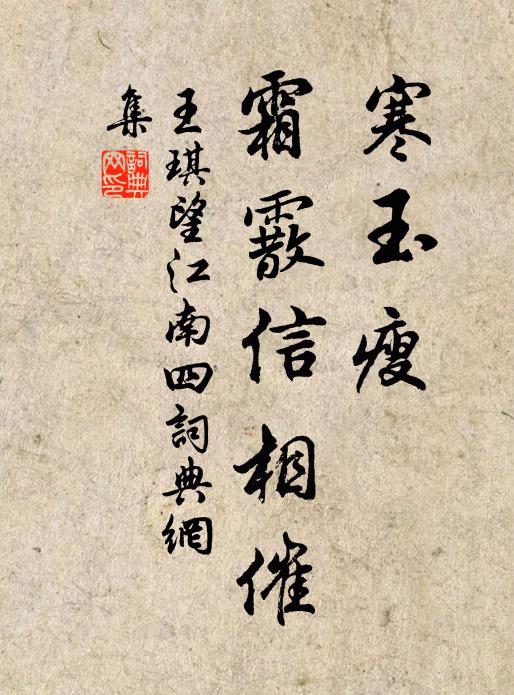 寒玉瘦
霜霰信相催
王琪望江南四詞典網
集
詞典網印